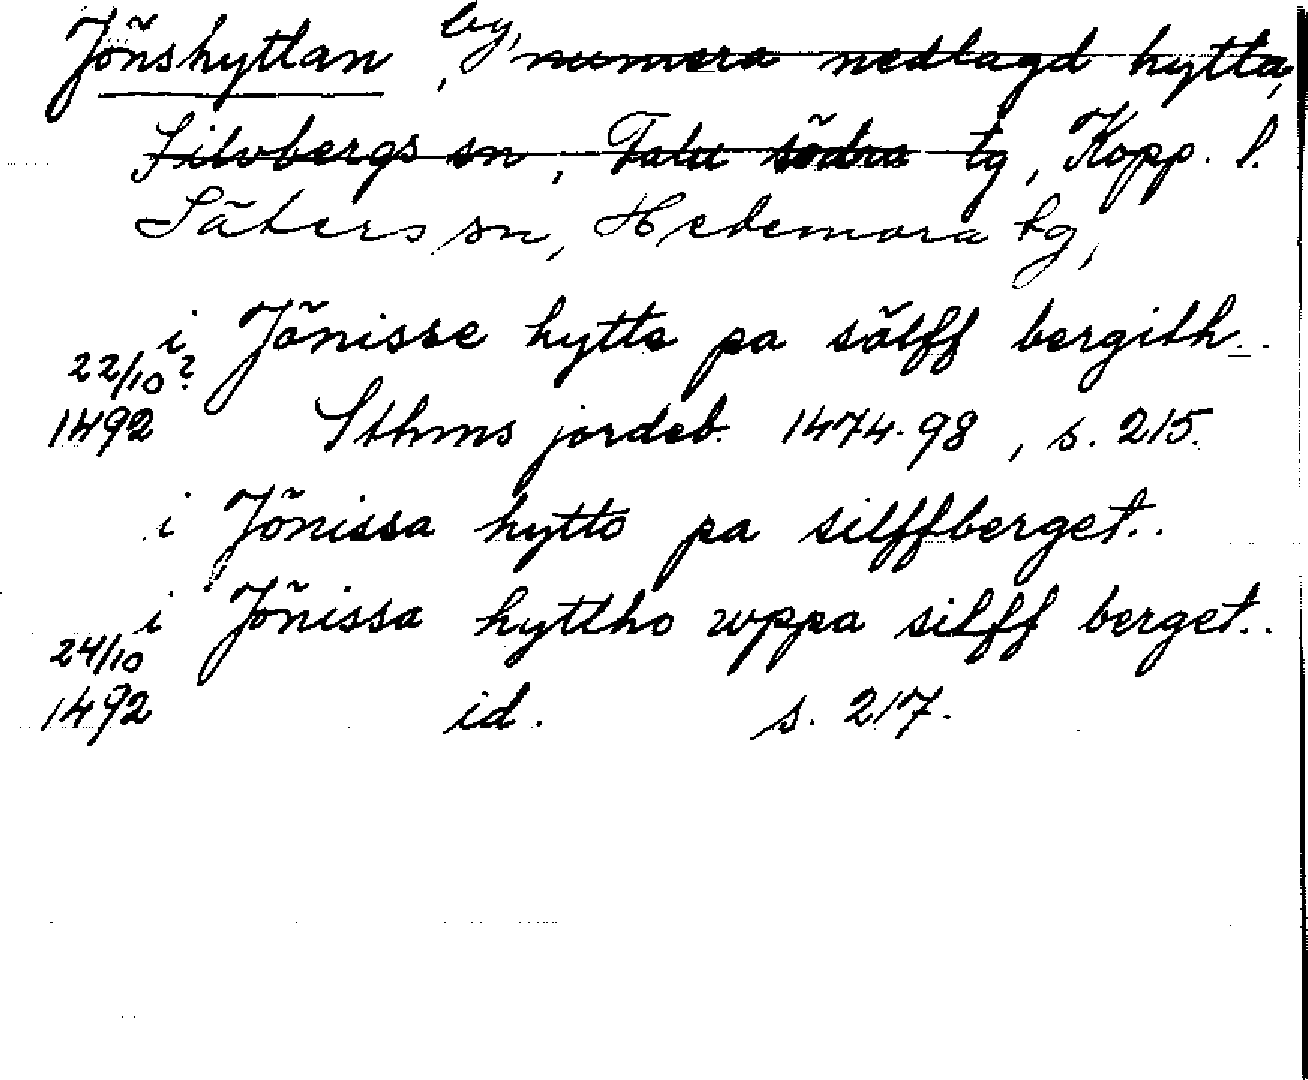 Jönshyttan, by, numera nedlagd hytta,
Silvbergs sn, Falu södra tg, Kopp. l.
Säters sn, Hedemora tg,
i Jönisse hytte pa sölff bergith..
22/10?
1492 Sthms jordeb. 1474-98, s. 215.
i Jönissa hytto pa silffberget..
i Jönissa hyttho wppa silff berget..
24/10
1492 id. s. 217.